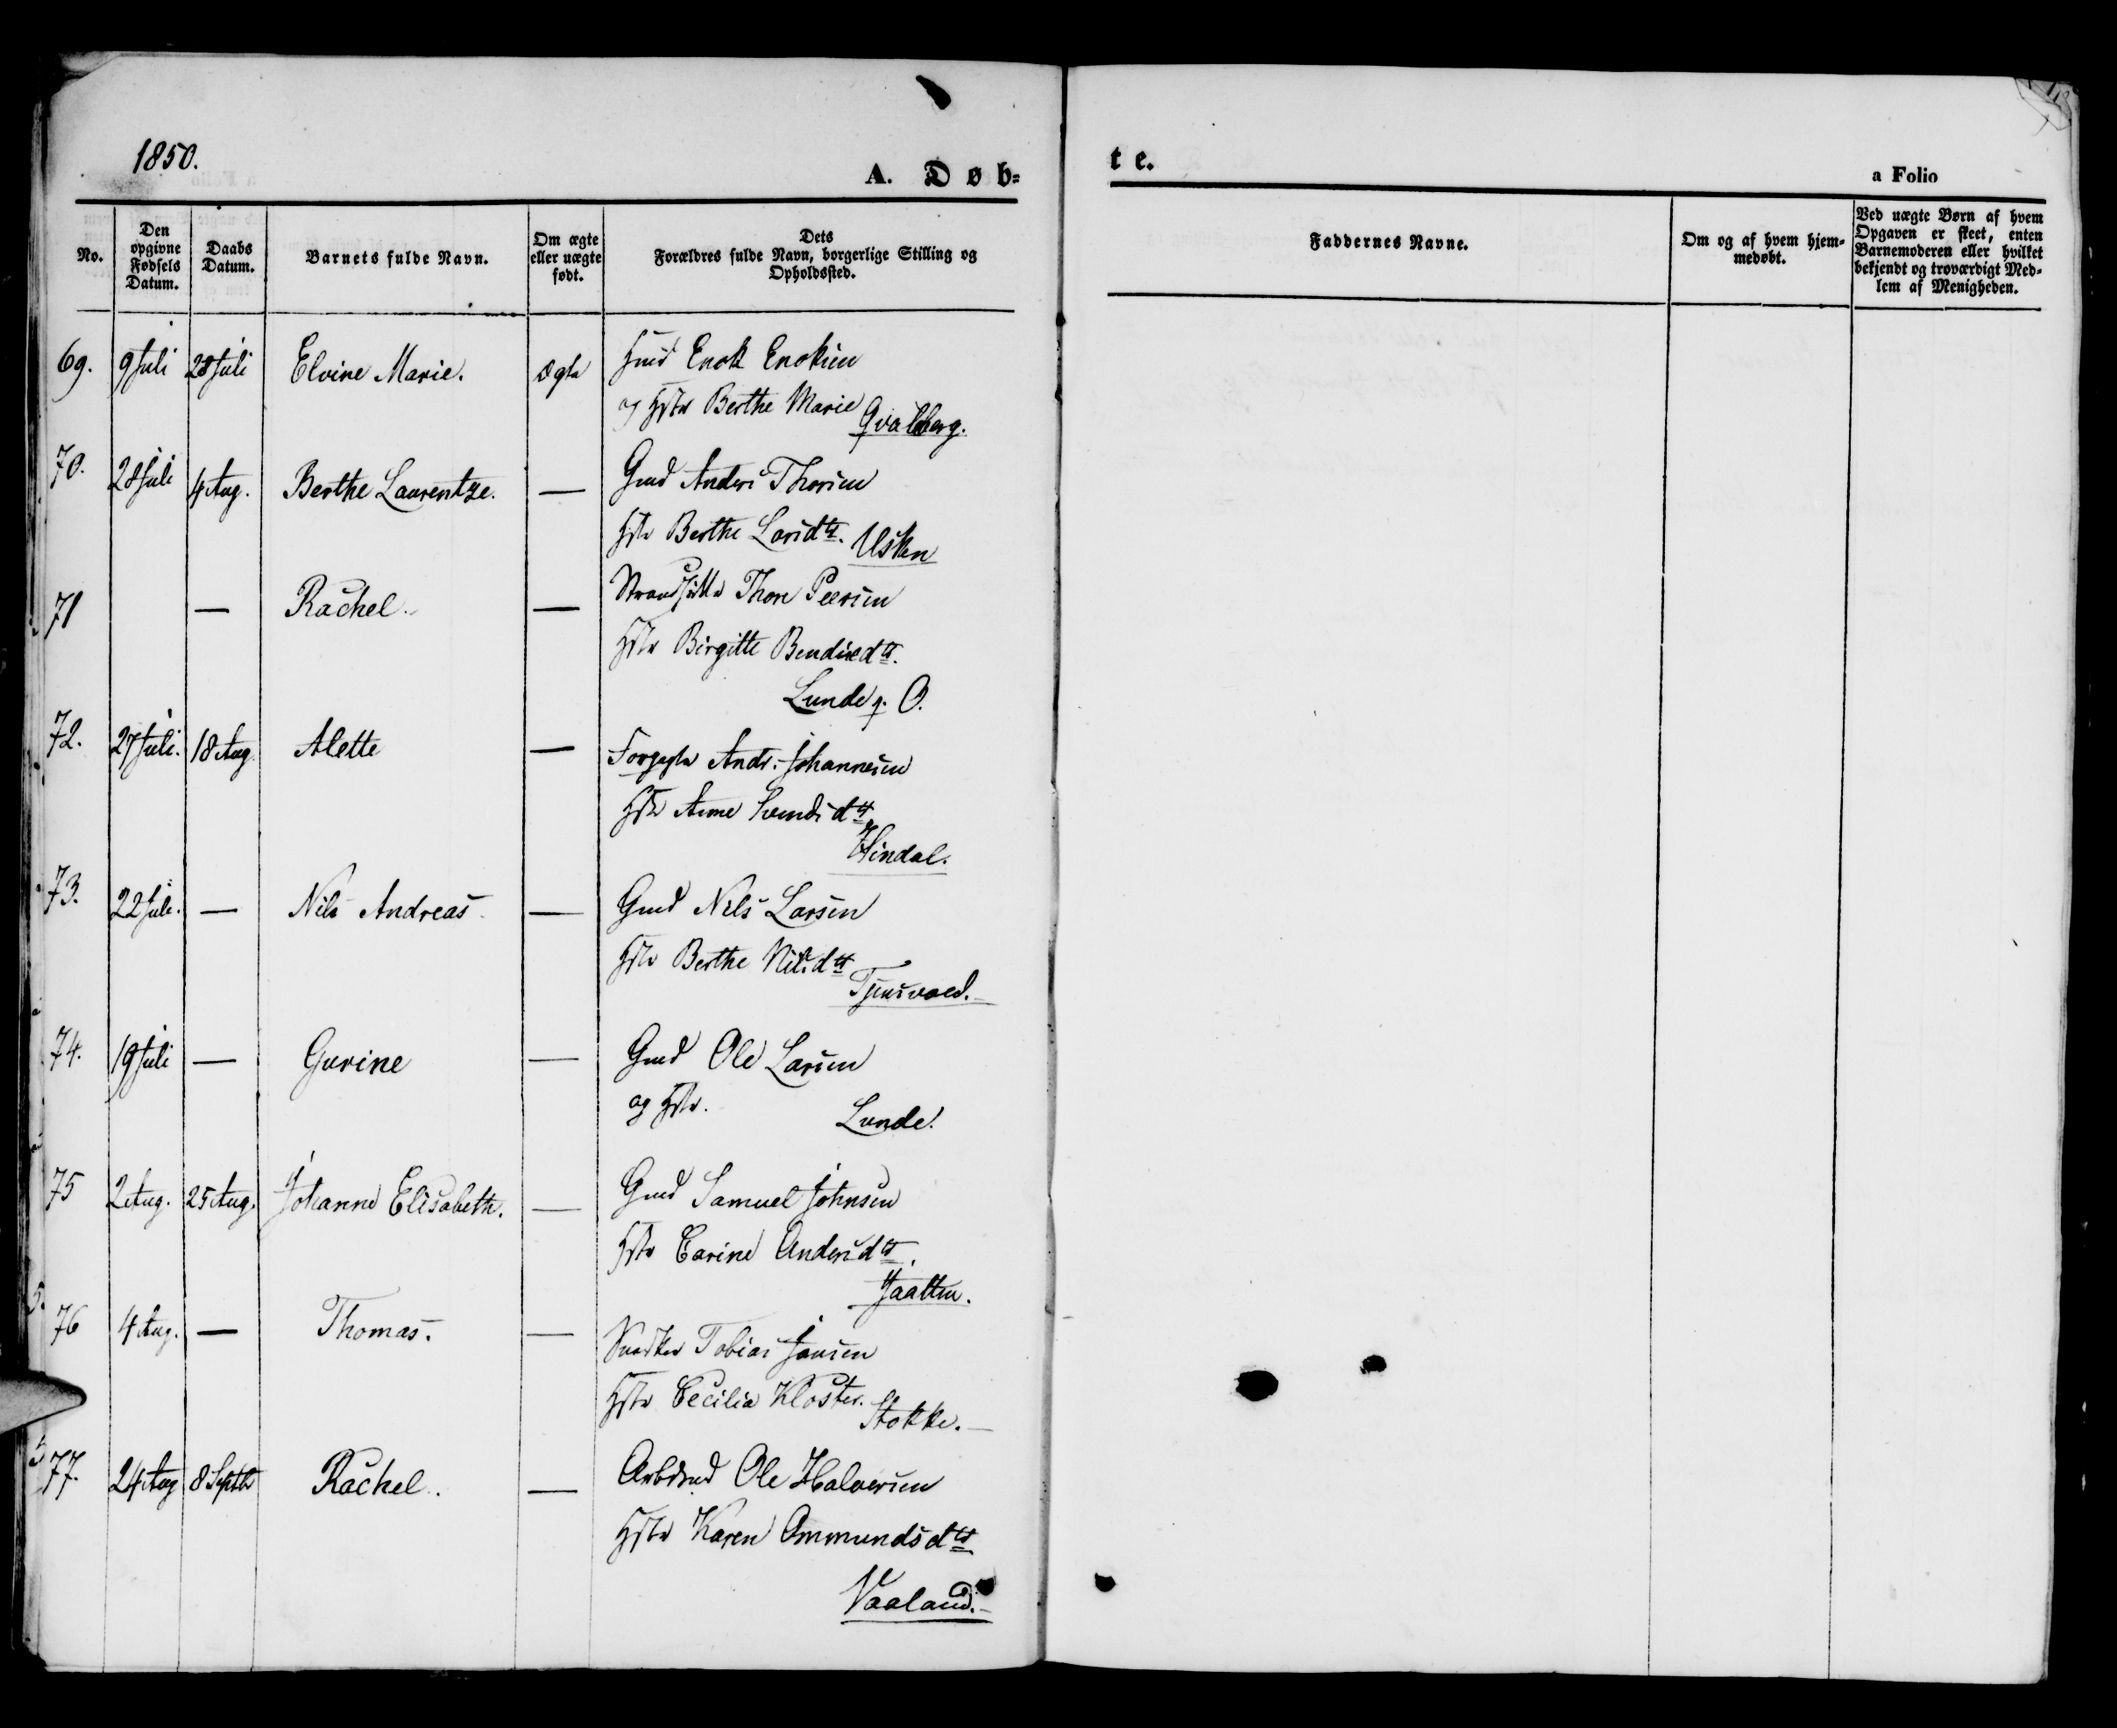 1850.
A. Døb=
te.
a Folio
No.
Den opgivne Fødsels Datum.
Daabs Datum.
Barnets fulde Navn.
Om ægte eller uægte født.
Dets Forældres fulde Navn, borgerlige Stilling og Opholdssted.
Faddernes Navne.
Om og af hvem hjem=medøbt.
Ved uægte Børn af hvem Opgaven er skeet, enten Barnemoderen eller hvilket bekjendt og troværdigt Med=lem af Menigheden.
69. 9 Juli 28 Juli Elvine Marie. ægte Enok Enoksen
og Hstr Berthe Marie
Qvaleberg.
70. 28 Juli 4 Aug. Berthe Laurentze. — Gmd Anders Thorsen
Hstr Berthe Larsdtr.
Usken
71 — Rachel. — Strandsidder Thore Peersen
Hstr Birgitte Bendixdtr.
Lunde g. O.
72. 27 Juli. 18 Aug. Alette — Andr. Johannesen
Hstr Anne Svendsdtr
Hindal.
73. 22 Juli. — Nils Andreas — Gmd Nels Larsen
Hstr Berthe Nilsdtr
Tjensvold.
74. 19 Juli — Gurine — Gmd Ole Larsen
og Hstr.
Lunde.
75 2 Aug. 25 Aug. Johanne Elisabeth. — Gmd Samuel Johnsen
Hstr Carine Andersdtr.
Jaatten.
76 4 Aug. — Thomas. — Snedker Tobias Jansen
Hstr Cecilia Kloster.
Stokke.
77. 24 Aug 8 Septbr Rachel. — Arbdmd Ole Halversen
Hstr Karen Ommundsdtr
Vaaland.